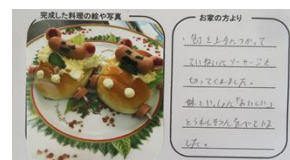 完成した料理の絵や写真
お家の方より
包丁を上手につかって
ていねいにソーセージを
切ってくれました。
妹といっしょに「おいしい」
とうれしそうに食べていま
した。